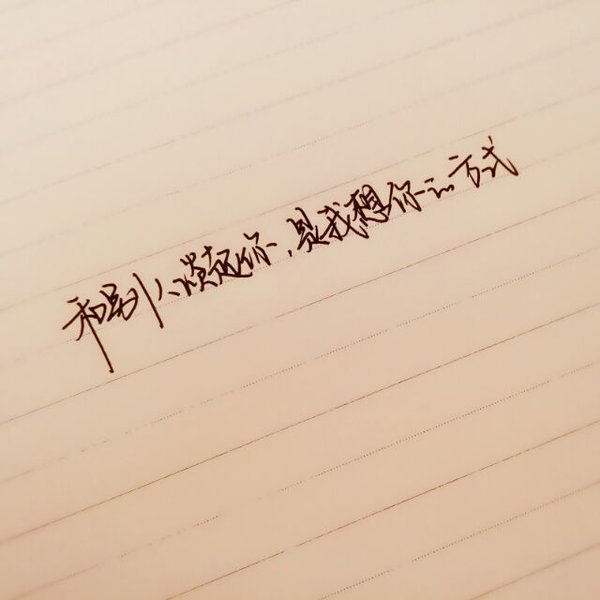 和别人谈起你，是我想你的方式